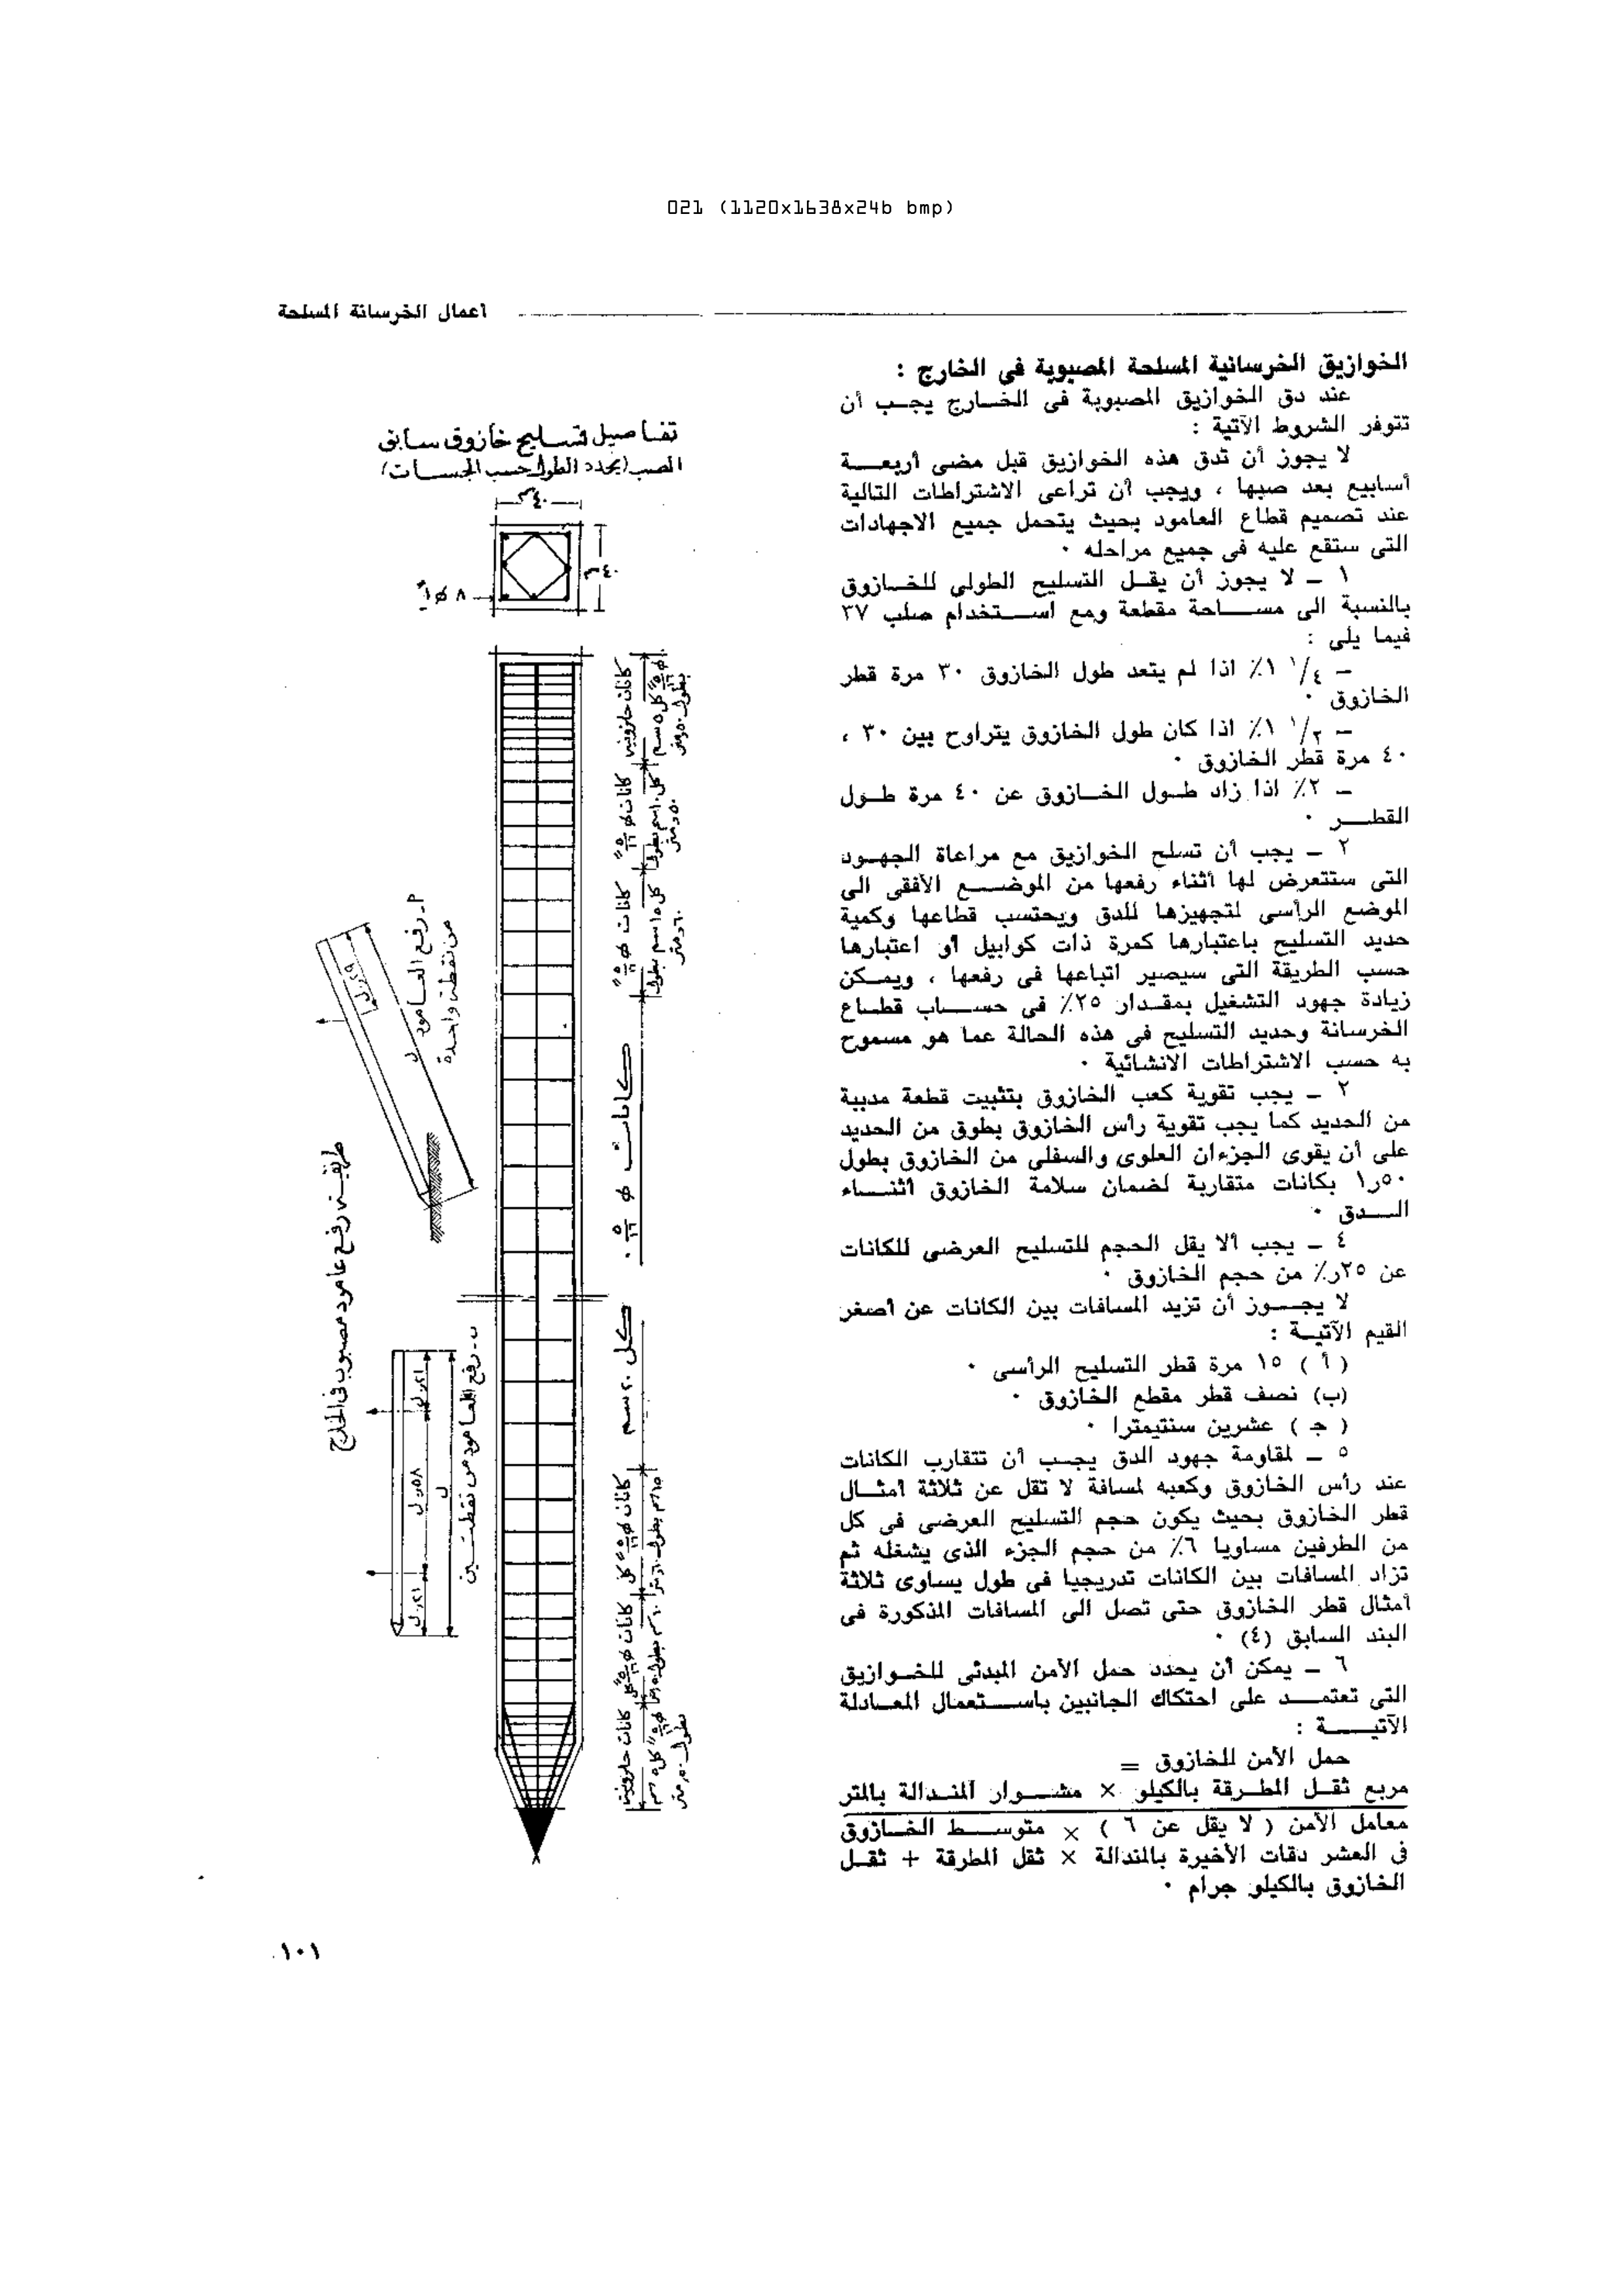 021 (1120x1638x24b bmp)
اعمال الخرسانة المسلحة
الخوازيق الخرسانية المسلحة المصبوبة فى الخارج :
عند دق الخوازيق المصبوبة فى الخــارج يجــب أن
تتوفر الشروط الآتية :
لا يجوز أن تدق هذه الخوازيق قبل مضى أربعــة
أسابيع بعد صبها ، ويجب أن تراعى الاشتراطات التالية
عند تصميم قطاع العامود بحيث يتحمل جميع الاجهادات
التى ستقع عليه فى جميع مراحله ٠
١ ــ لا يجوز أن يقــل التسليح الطولى للخــازوق
بالنسبة الى مســاحة مقطعة ومع اســتخدام صلب ٣٧
فيما يلى :
ــ ١/٤ ١٪ اذا لم يتعد طول الخازوق ٣٠ مرة قطر
الخازوق ٠
ــ ١/٢ ١٪ اذا كان طول الخازوق يتراوح بين ٣٠ ،
٤٠ مرة قطر الخازوق ٠
ــ ٢٪ اذا زاد طــول الخــازوق عن ٤٠ مرة طــول
القطــر ٠
٢ ــ يجب أن تسلح الخوازيق مع مراعاة الجهــود
التى ستتعرض لها أثناء رفعها من الموضــع الأفقى الى
الموضع الرأسى لتجهيزها للدق ويحتسب قطاعها وكمية
حديد التسليح باعتبارها كمرة ذات كوابيل أو اعتبارها
حسب الطريقة التى سيصير اتباعها فى رفعها ، ويمــكن
زيادة جهود التشغيل بمقــدار ٢٥٪ فى حســاب قطــاع
الخرسانة وحديد التسليح فى هذه الحالة عما هو مسموح
به حسب الاشتراطات الانشائية ٠
٢ ــ يجب تقوية كعب الخازوق بتثبيت قطعة مدببة
من الحديد كما يجب تقوية رأس الخازوق بطوق من الحديد
على أن يقوى الجزءان العلوى والسفلى من الخازوق بطول
١٫٥٠ بكانات متقاربة لضمان سلامة الخازوق أثنــاء
الــدق ٠
٤ ــ يجب ألا يقل الحجم للتسليح العرضى للكانات
عن ٢٥ر٪ من حجم الخازوق ٠
لا يجــوز أن تزيد المسافات بين الكانات عن أصغر
القيم الآتيــة :
( أ ) ١٥ مرة قطر التسليح الرأسى ٠
(ب) نصف قطر مقطع الخازوق ٠
( جـ ) عشرين سنتيمترا ٠
٥ ــ لمقاومة جهود الدق يجــب أن تتقارب الكانات
عند رأس الخازوق وكعبه لمسافة لا تقل عن ثلاثة أمثــال
قطر الخازوق بحيث يكون حجم التسليح العرضى فى كل
من الطرفين مساويا ٦٪ من حجم الجزء الذى يشغله ثم
تزاد المسافات بين الكانات تدريجيا فى طول يساوى ثلاثة
أمثال قطر الخازوق حتى تصل الى المسافات المذكورة فى
البند السابق (٤) ٠
٦ ــ يمكن أن يحدد حمل الأمن المبدئى للخــوازيق
التى تعتمــد على احتكاك الجانبين باســتعمال المعــادلة
الآتيــــة :
حمل الأمن للخازوق =
مربع ثقــل المطــرقة بالكيلو × مشــوار المنــدالة بالمتر
معامل الأمن ( لا يقل عن ٦ ) × متوســط الخــازوق
فى العشر دقات الأخيرة بالمندالة × ثقل المطرقة + ثقــل
الخازوق بالكيلو جرام ٠
تفاصيل تسليح خازوق سابق
الصب (يحدد الطول حسب الجسات)
٤٠
٤٠
٨ ф
كانات حلزونية
كل ٥ سم
كل ١٠ سم بطول
كل ١٥ سم بطول
كانات ф
كل ٢٠ سم
كانات حلزونية
٢ ـ رفع العامود
من نقطة واحدة
ل
ب ـ رفع العامود من نقطتين
٢١ر٠ل
٥٨ر٠ل
٢١ر٠ل
ل
طريقة رفع عامود مصبوب فى الخارج
١٠١